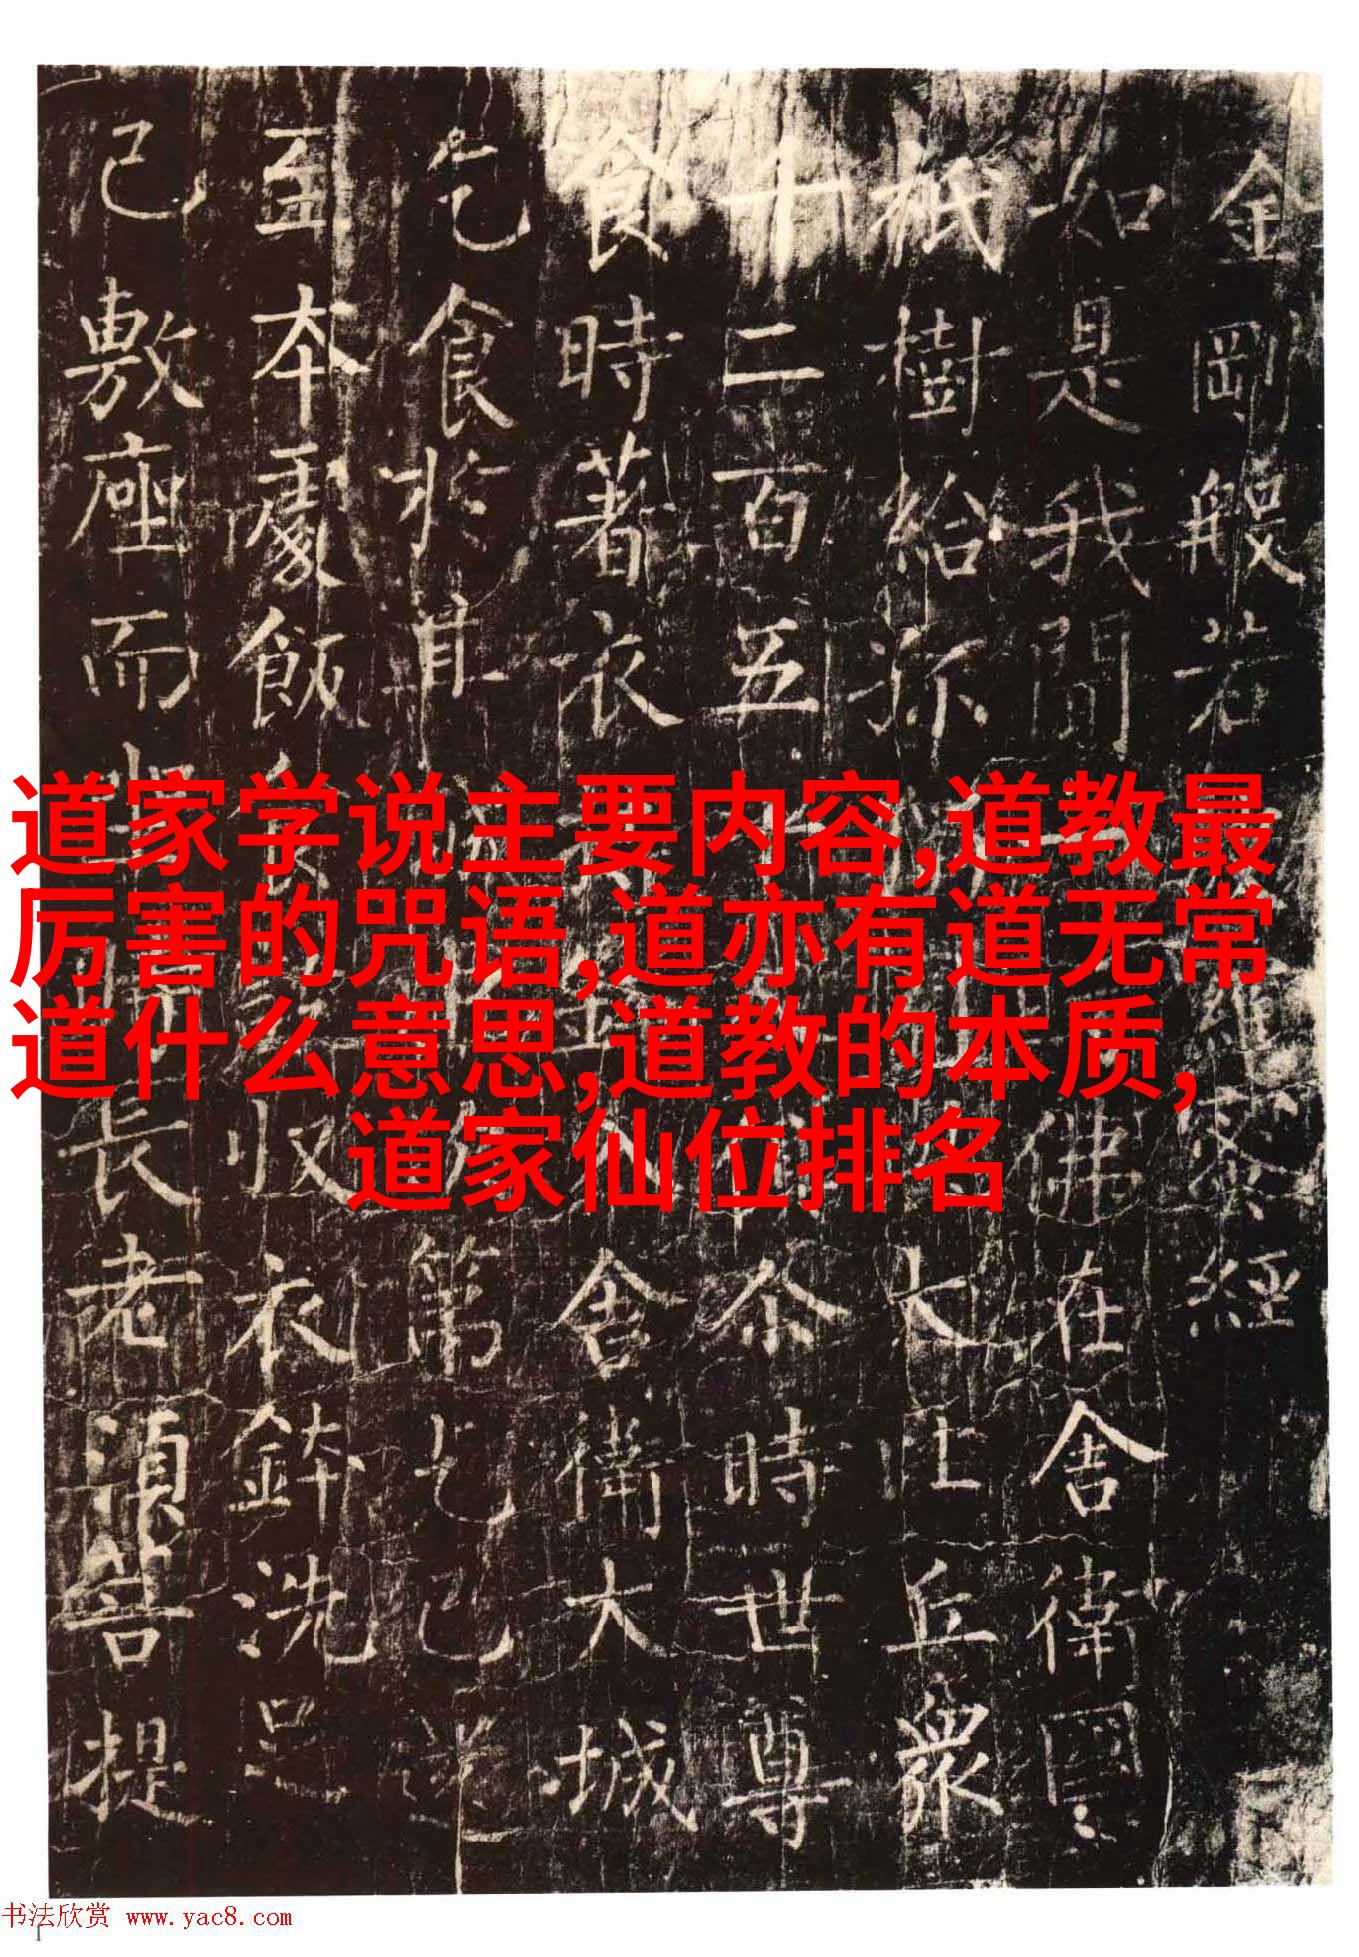 金剛般若羅蜜經
如是我聞佛在舍衛國
祇樹給孤大比丘眾
十二百五十尒時世尊
食時著衣舍衛大城
乞食於其第乞已還
至本處飯食收衣鉢洗足
已敷座而坐時長老須菩提
道家学说主要内容,道教最
厉害的咒语,道亦有道无常
道什么意思,道教的本质,
道家仙位排名
书法欣赏 www.yac8.com